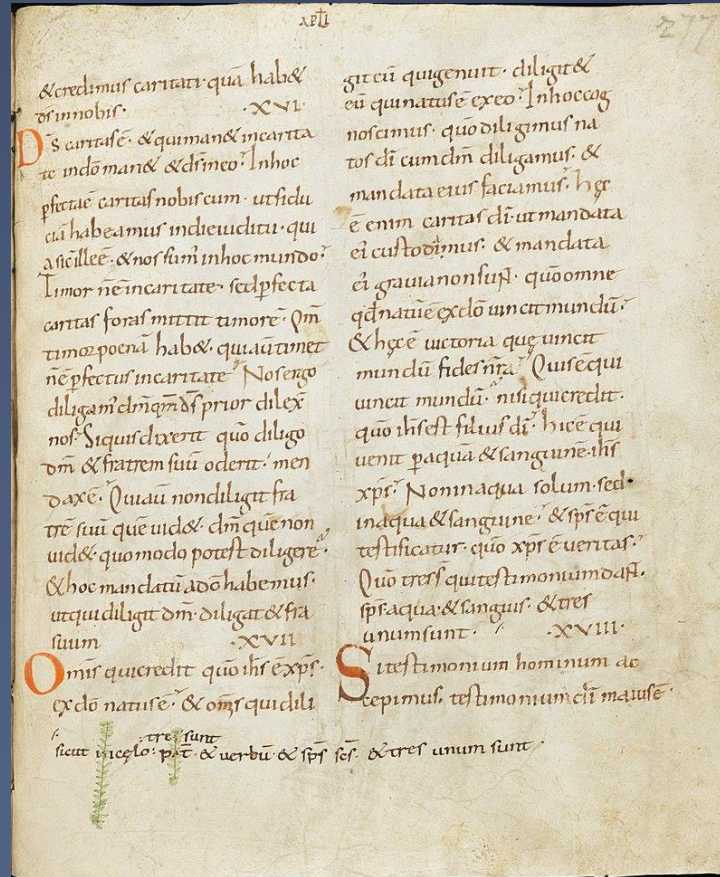 APLI
277
& credimus caritati· quā hab&
dſ innobis· ·XVI·
Dſ caritasē· & quiman& incarita
te indō man& & dſ ineo· Inhoc
pfectaē caritas nobiscum· utfidu
ciā habeamus indieiudicii· qui
asicilleē· & nos sum̄ inhoc mundo·
Timor nē incaritate· sedpfecta
caritas foras mittit timorē· Qm̄
timor poenā hab&· quiaūtim&
nē pfectus incaritate Nosergo
diligam̄ dm̄ qm̄ dſ prior dilex
nos· Siquis dixerit quō diligo
dm̄ & fratrem suū oderit· men
daxē· Quiaū nondiligit fra
trē suū quē uid&· dm̄ quē non
uid&· quomodo potest diligere·
& hoc mandatū adō habemus·
utqui diligit dm̄· diligat & frā
suum ·XVII
Omīs quicredit quō ihſ ē xpſ·
exdō natusē· & om̄s quidili
git eū quigenuit· diligit &
eū quinatusē exeo· Inhoccog
noscimus· quō diligimus na
tos dī cum dm̄ diligamus· &
mandata eius faciamus· hęc
ē enim caritas dī· ut mandata
ei custodimus· & mandata
ei grauia nonsuN̄· quō omne
qd̄ natūē exdō uincit mundū·
& hęc ē uictoria quę uincit
mundū fides nr̄a Quisēqui
uincit mundū· nisi quicredit·
quō ihſ est filius dī· hicē qui
uenit paquā & sanguinē· ihſ
xpſ· Non inaqua solum· sed·
inaqua & sanguine· & spſ ē qui
testificatur· quō xpſ ē ueritas·
Quō tresſ qui testimonium daN̄·
spſ aqua· & sanguis· & tres
unum sunt· ·XVIII·
Si testimonium hominum ac
cepimus· testimonium dī maiusē·
tres sunt
sicut incęlo· pat̄· & uerbū· & spſ scſ· & tres unum sunt·